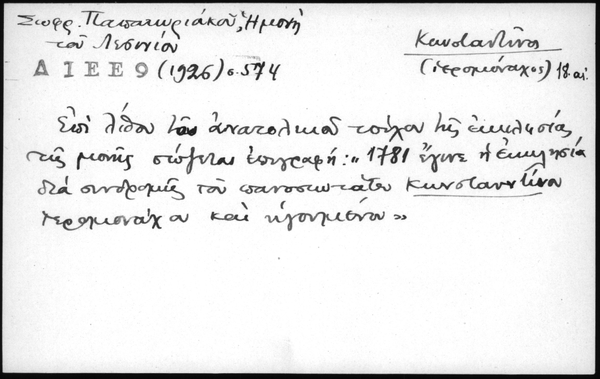 Σωφρ. Παπακυριάκου, Ἡ μονὴ
τοῦ Λεσινίου
ΔΙΕΕ9 (1926) σ. 574
Κωνσταντῖνος
(ἱερομόναχος) 18. αἰ.
Ἐπὶ λίθου τοῦ ἀνατολικοῦ τοίχου τῆς ἐκκλησίας
τῆς μονῆς σώζεται ἐπιγραφή: « 1781 ἔγινε ἡ ἐκκλησία
διὰ συνδρομῆς τοῦ πανοσιωτάτου Κωνσταντίνου
ἱερομονάχου καὶ ἡγουμένου »